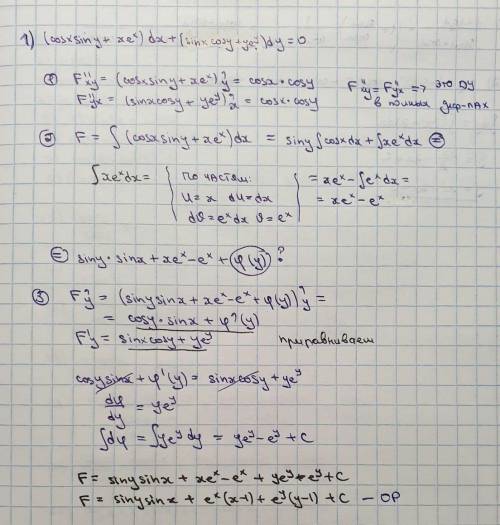 1) (cosx siny + xeˣ) dx + (sinx cosy + yeʸ) dy = 0
① F''xy = (cosx siny + xeˣ)'y = cosx · cosy
F''xy = F''yx => это ДУ
F''yx = (sinx cosy + yeʸ)'x = cosx · cosy
в полных диф-лах
② F = ∫ (cosx siny + xeˣ) dx = siny ∫ cosx dx + ∫ xeˣ dx =
∫ xeˣ dx = { по частям: } = xeˣ - ∫ eˣ dx =
u = x du = dx = xeˣ - eˣ
dϑ = eˣ dx ϑ = eˣ
= siny · sinx + xeˣ - eˣ + φ(y) ?
③ F'y = (siny sinx + xeˣ - eˣ + φ(y))'y =
= cosy · sinx + φ'(y)
F'y = sinx cosy + yeʸ приравниваем
cosy sinx + φ'(y) = sinx cosy + yeʸ
dφ/dy = yeʸ
∫ dφ = ∫ yeʸ dy = yeʸ - eʸ + C
F = siny sinx + xeˣ - eˣ + yeʸ - eʸ + C
F = siny sinx + eˣ(x-1) + eʸ(y-1) + C — ОР